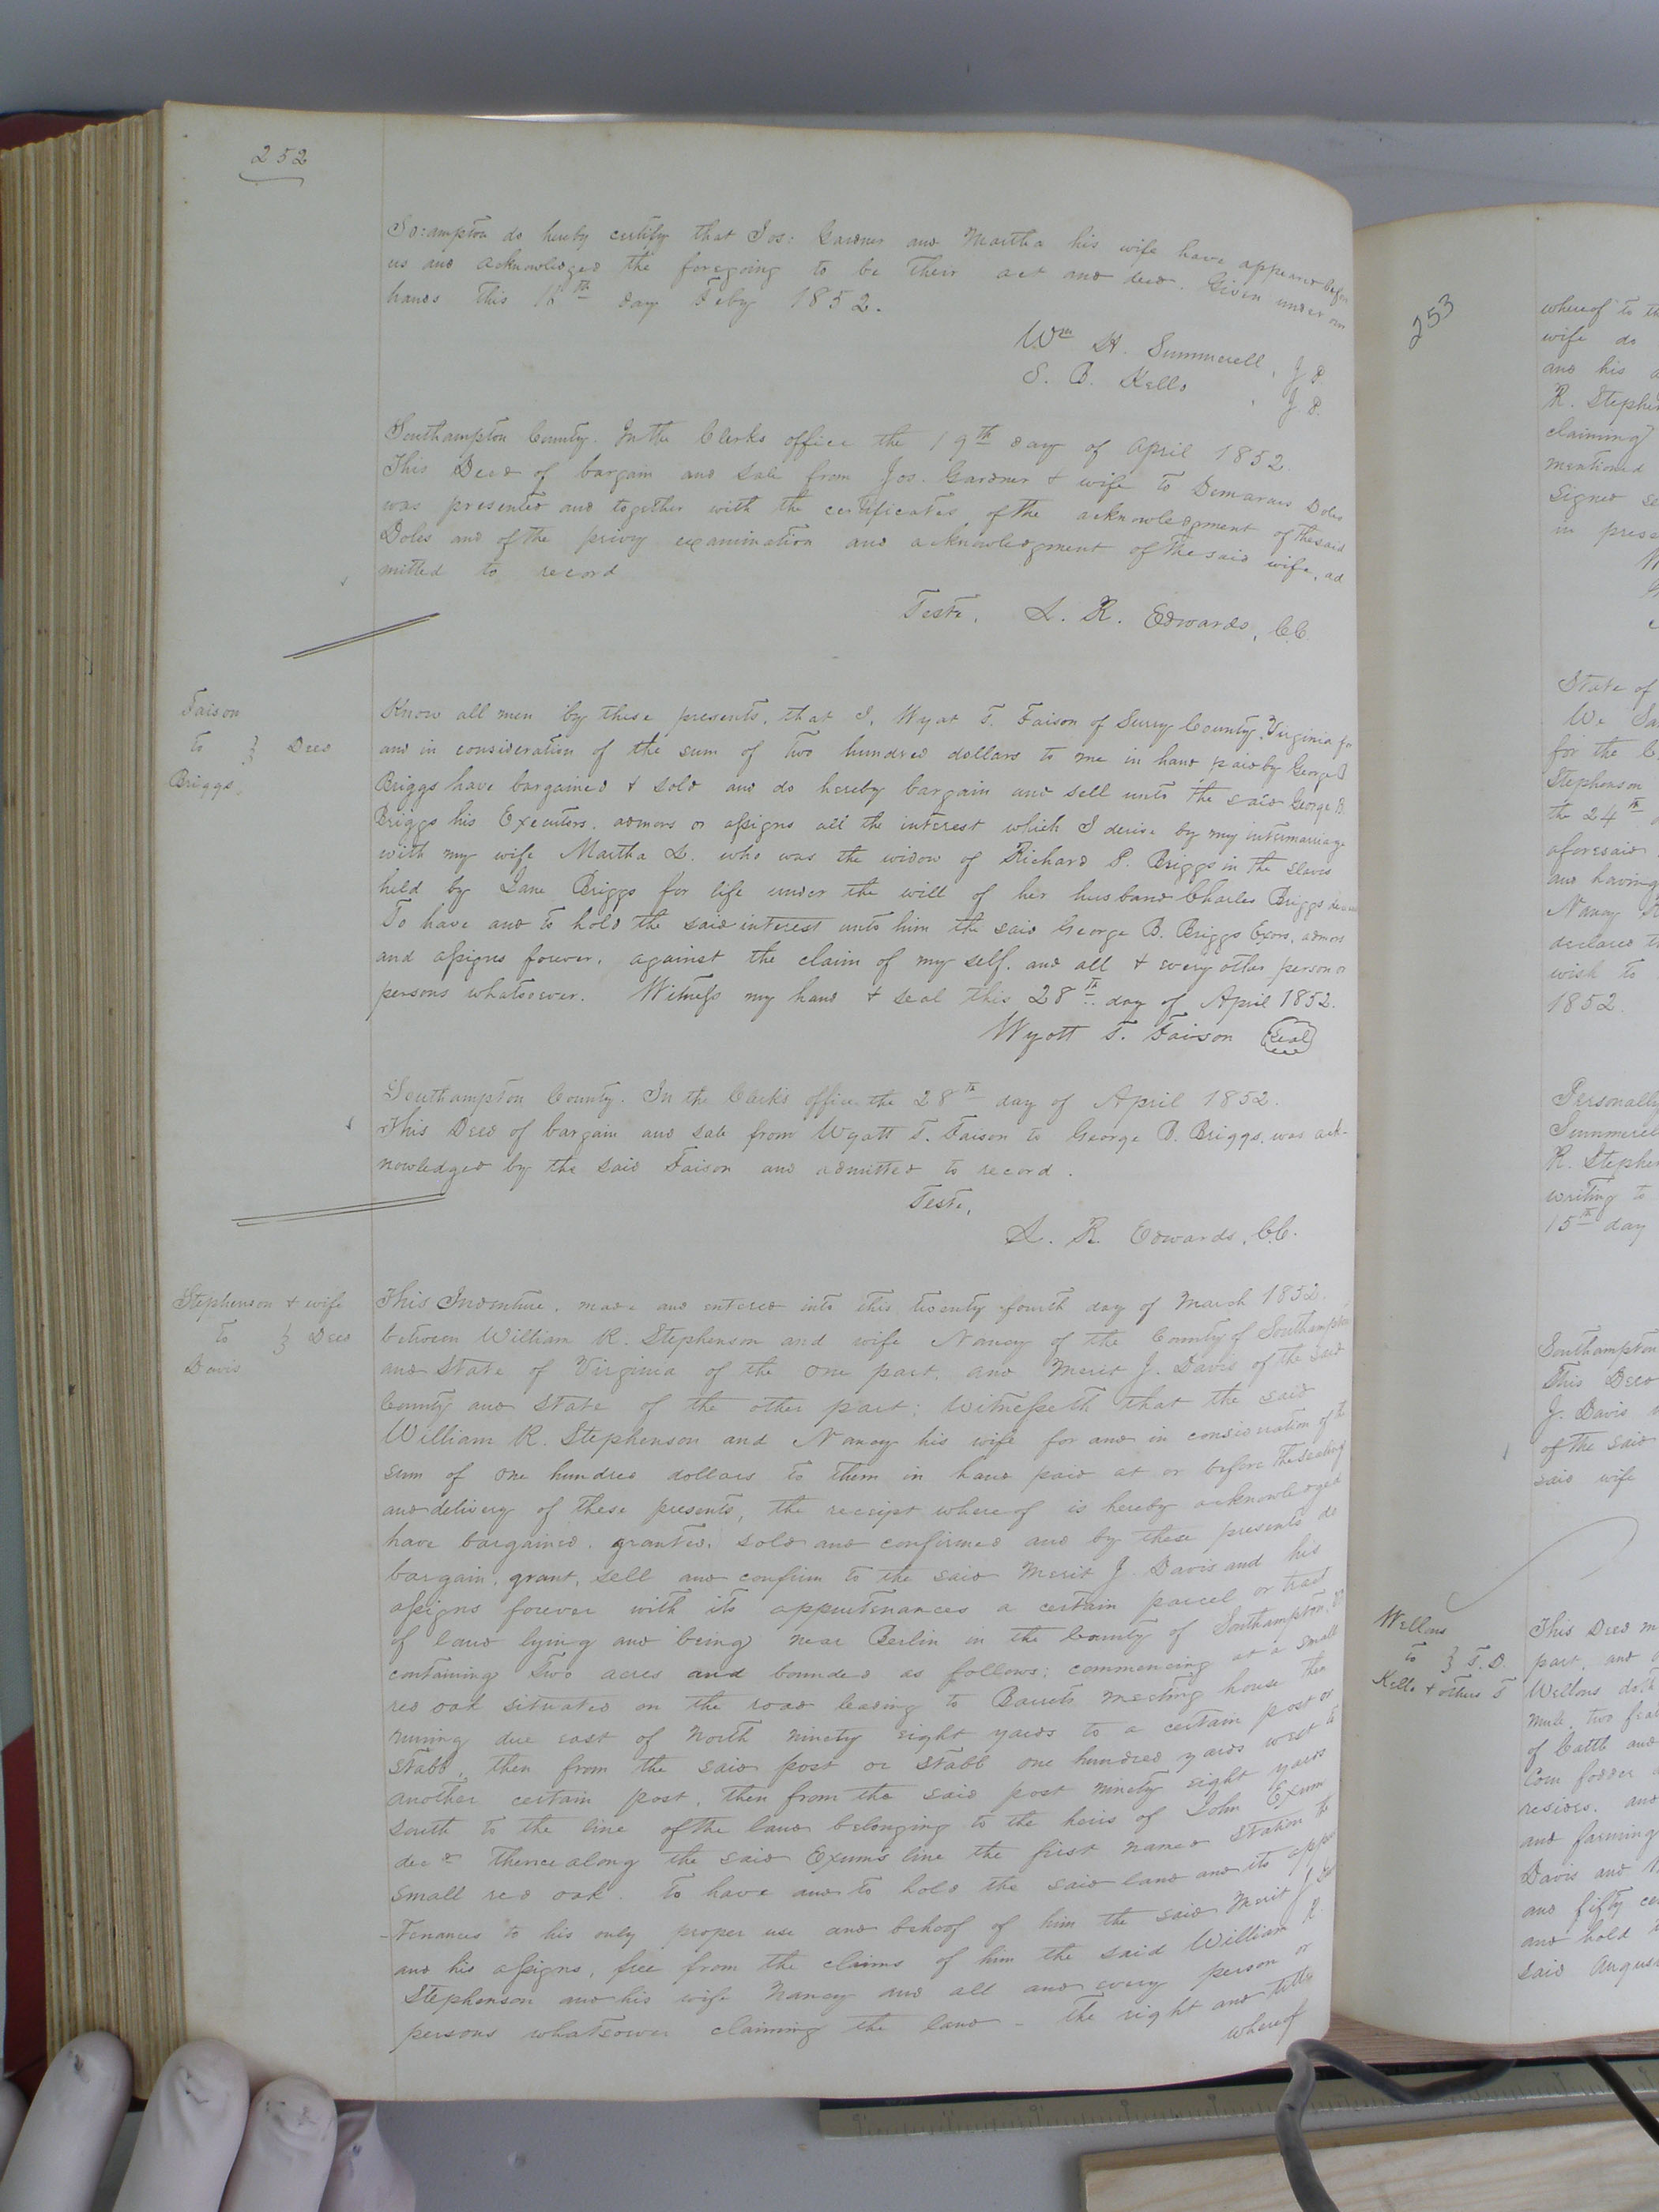 252
So:ampton do hereby certify that Jos: Gardner and Martha his wife have appeared before
us and acknowledged the foregoing to be their act and deed. Given under our
hands this day Feby 1852.
Wm H. Summerell, J P.
S. B. Kello, J P.
Southampton County. In the Clerks office the 19th day of April 1852.
This Deed of bargain and sale from Jos. Gardner & wife to Demaraus Doles
was presented and together with the certificates of the acknowledgment of the said
Doles and of the privy examination and acknowledgment of the said wife, ad
mitted to record
Teste, L. R. Edwards, C.C.
Faison
to } Deed
Briggs,
Know all men by these presents, that I, Wyat T. Faison of Surry County, Virginia for
and in consideration of the sum of two hundred dollars to me in hand paid by George B
Briggs have bargained & sold and do hereby bargain and sell unto the said George B
Briggs his Executors, admors or assigns all the interest which I derive by my intermarriage
with my wife Martha L. who was the widow of Richard P. Briggs in the slaves
held by Jane Briggs for life under the will of her husband Charles Briggs
To have and to hold the said interest unto him the said George B. Briggs Exors, admors
and assigns forever, against the claim of my self, and all & every other person or
persons whatsoever. Witness my hand & seal this 28th day of April 1852.
Wyott T. Faison Seal
Southampton County. In the Clerks office the 28th day of April 1852.
This Deed of bargain and sale from Wyatt T. Faison to George B. Briggs, was ack-
nowledged by the said Faison and admitted to record.
Teste,
L. R. Edwards, C.C.
Stephenson & wife
to } Deed
Davis
This Indenture, made and entered into this twenty fourth day of March 1852.
between William R. Stephenson and wife Nancy of the County of Southampton
and State of Virginia of the one part, and Merit J. Davis of the said
County and State of the other part; Witnesseth that the said
William R. Stephenson and Nancy his wife for and in consideration of the
sum of one hundred dollars to them in hand paid at or before the sealing
and delivery of these presents, the receipt whereof is hereby acknowledged
have bargained, granted, sold and confirmed and by these presents do
bargain, grant, sell and confirm to the said Merit J. Davis and his
assigns forever with its appurtenances a certain parcel or tract
of land lying and being near Berlin in the County of Southampton,
containing two acres and bounded as follows; commencing at a small
red oak situated on the road leading to Barretts meeting house then
runing due east of North ninety eight yards to a certain post or
stabb, then from the said post or stabb one hundred yards west to
another certain post, then from the said post ninety eight yards
south to the line of the land belonging to the heirs of John Exum
decd thence along the said Exum's line the first named station the
small red oak. To have and to hold the said land and its appur
-tenances to his only proper use and behoof of him the said Merit J Davis
and his assigns, free from the claims of him the said William R.
Stephenson and his wife Nancy and all and every person or
persons whatsoever claiming the land - the right and title
whereof
253
whereof to th
wife do
and his a
R. Stephen
claiming
mentioned
Signed se
in prese
State of
We Ja
for the C
Stephenson
the 24th
aforesaid
and having
Nancy
declared t
wish to
1852.
Personally
Summerell
R. Stephen
writing to
15th day
Southampton
This Deed
J. Davis
of the said
said wife
Wellons
to } T. D.
Kello & others
This Deed m
part, and
Wellons doth
mule, two fea
of Cattle and
Corn fodder
resides, and
and farming
Davis and
and fifty ce
and hold
said Augus